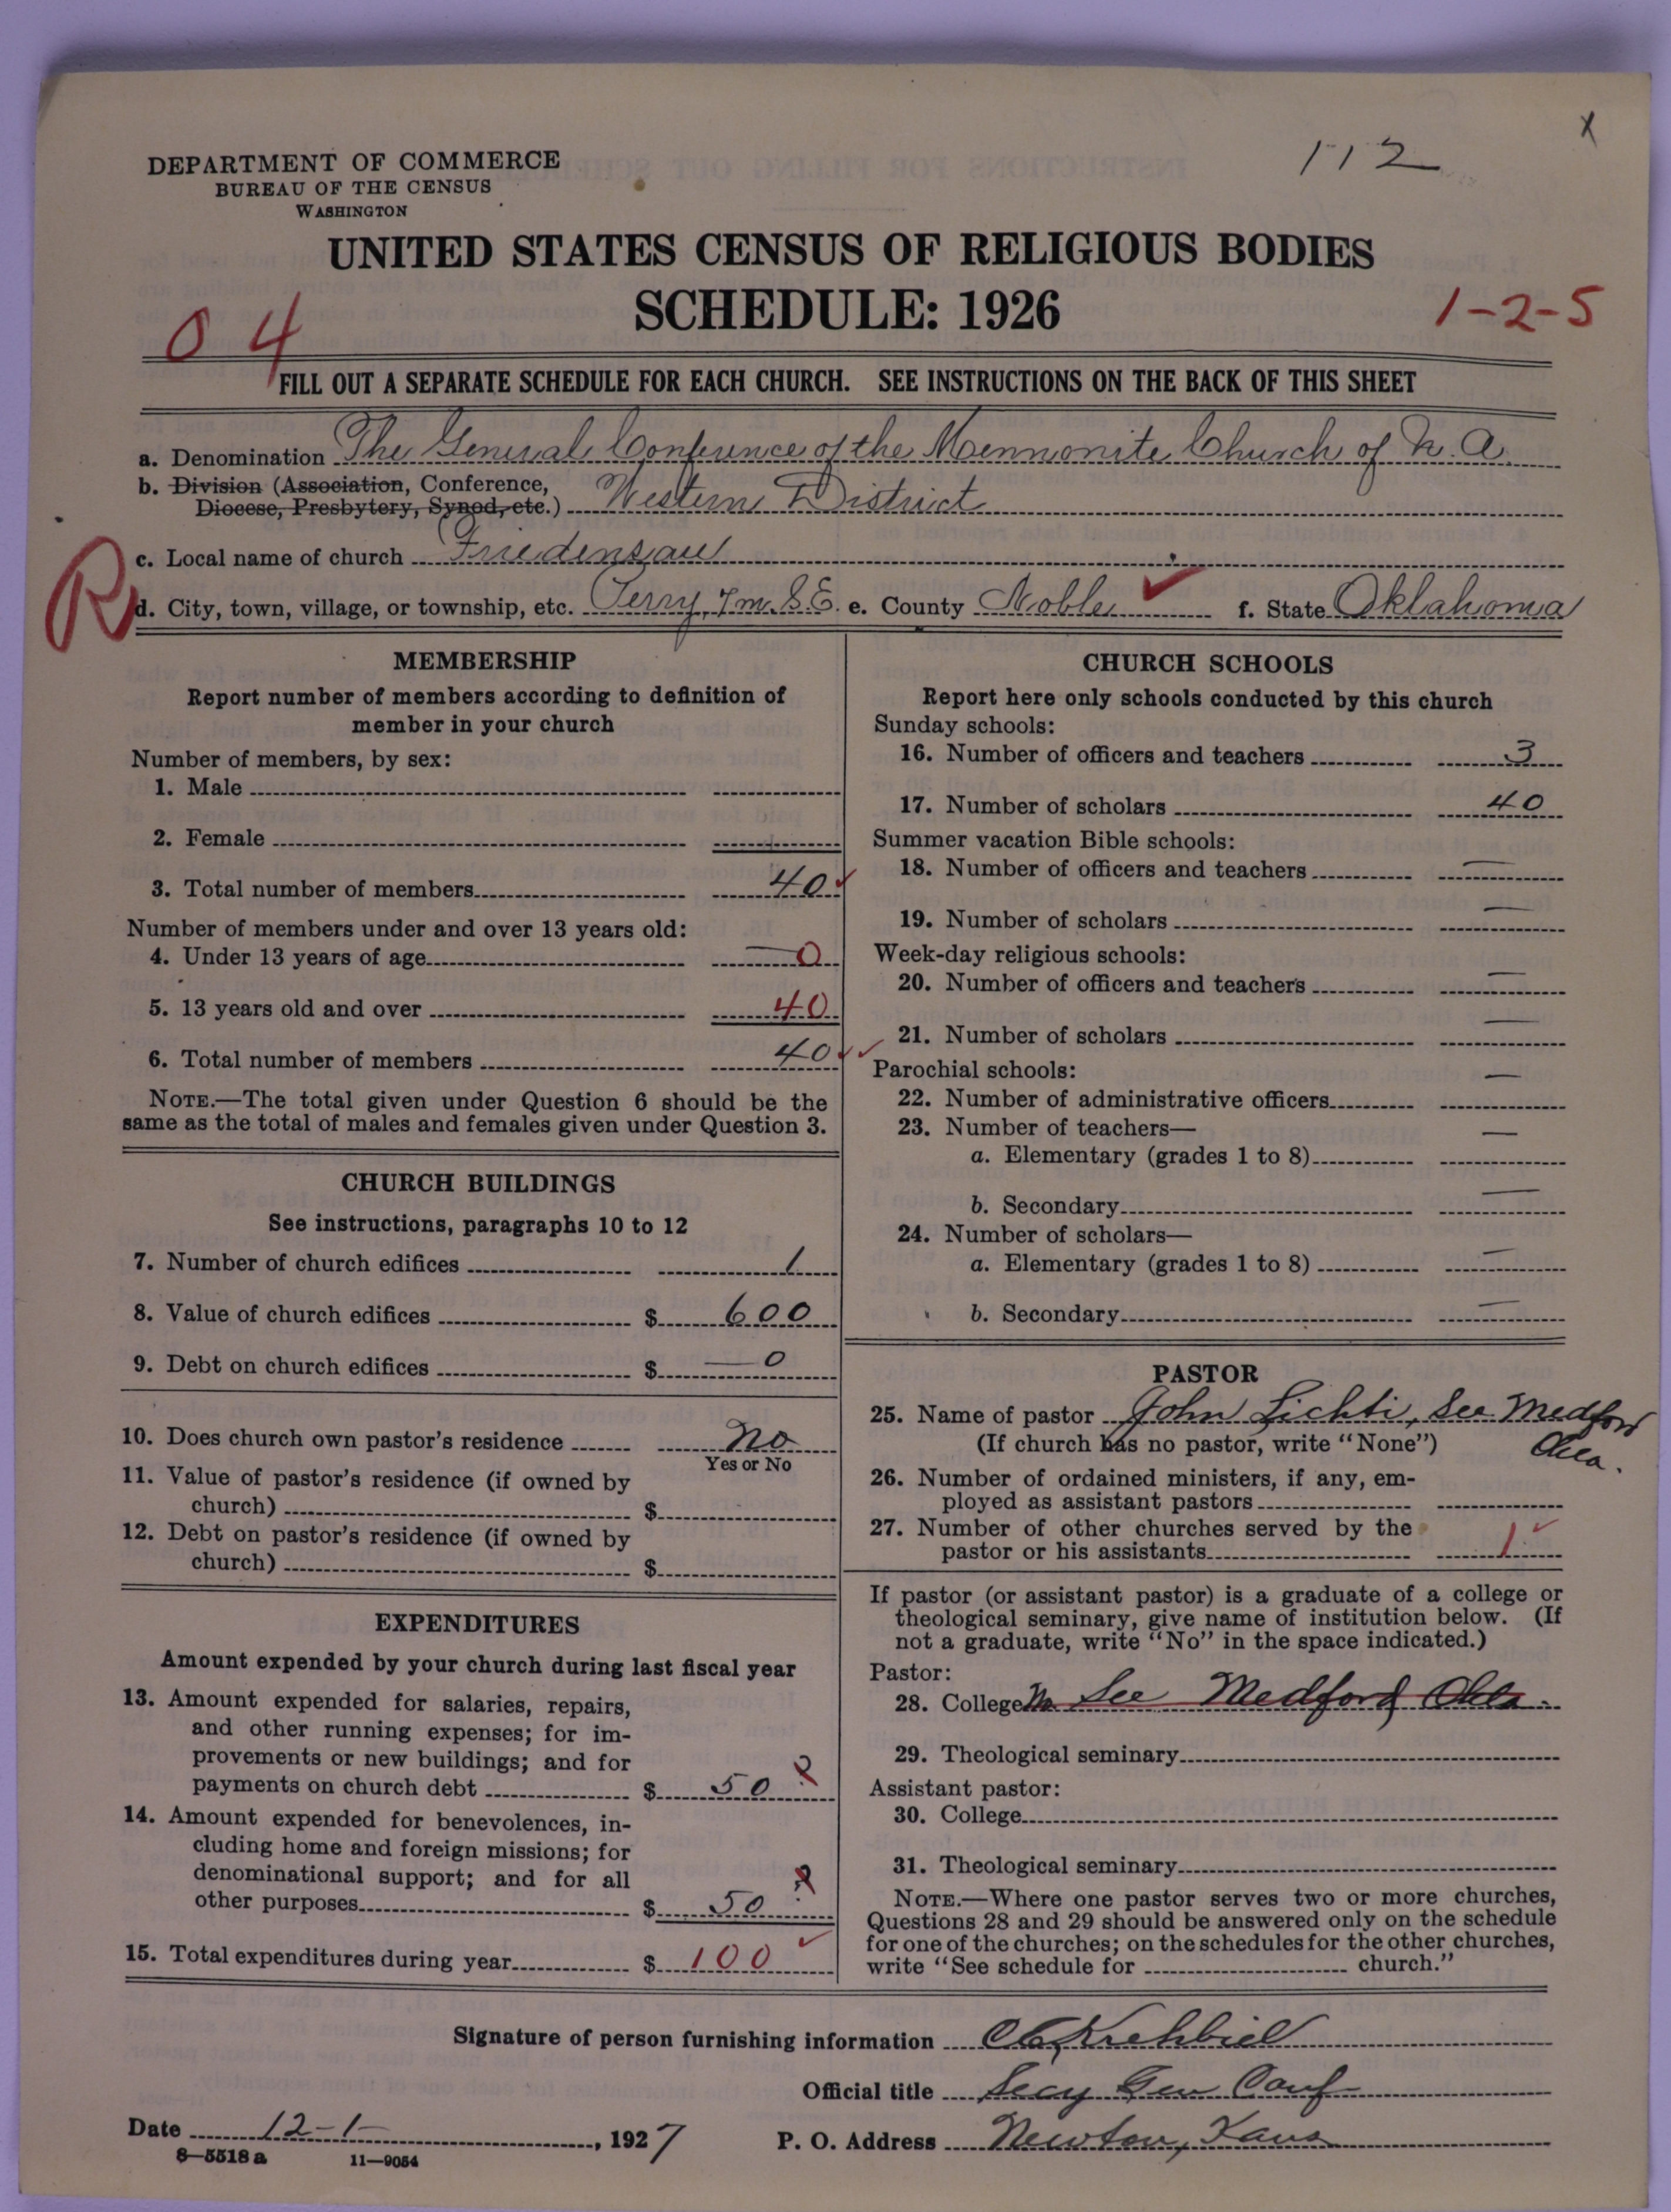 112
x
DEPARTMENT OF COMMERCE
BUREAU OF THE CENSUS
WASHINGTON
UNITED STATES CENSUS OF RELIGIOUS BODIES
SCHEDULE: 1926
04
1-2-5
FILL OUT A SEPARATE SCHEDULE FOR EACH CHURCH. SEE INSTRUCTIONS ON THE BACK OF THIS SHEET
a. Denomination The General Conference of the Mennonite Church of N. A.
b. Division (Association, Conference,
Diocese, Presbytery, Synod, etc.) Western District
c. Local name of church Friedensau
R
d. City, town, village, or township, etc. Perry, 7 m. S.E. e. County Noble ✓ f. State Oklahoma
MEMBERSHIP
Report number of members according to definition of
member in your church
Number of members, by sex:
1. Male
2. Female
3. Total number of members 40 ✓
Number of members under and over 13 years old:
4. Under 13 years of age — 0
5. 13 years old and over 40
6. Total number of members 40 ✓✓
NOTE.—The total given under Question 6 should be the
same as the total of males and females given under Question 3.
CHURCH BUILDINGS
See instructions, paragraphs 10 to 12
7. Number of church edifices 1
8. Value of church edifices $ 600
9. Debt on church edifices $ — 0
10. Does church own pastor's residence No
Yes or No
11. Value of pastor's residence (if owned by
church) $
12. Debt on pastor's residence (if owned by
church) $
EXPENDITURES
Amount expended by your church during last fiscal year
13. Amount expended for salaries, repairs,
and other running expenses; for im-
provements or new buildings; and for
payments on church debt $ 50 ?
14. Amount expended for benevolences, in-
cluding home and foreign missions; for
denominational support; and for all
other purposes $ 50 ?
15. Total expenditures during year $ 100 ✓
CHURCH SCHOOLS
Report here only schools conducted by this church
Sunday schools:
16. Number of officers and teachers 3
17. Number of scholars 40
Summer vacation Bible schools:
18. Number of officers and teachers —
19. Number of scholars —
Week-day religious schools:
20. Number of officers and teachers —
21. Number of scholars —
Parochial schools:
22. Number of administrative officers —
23. Number of teachers—
a. Elementary (grades 1 to 8) —
b. Secondary —
24. Number of scholars—
a. Elementary (grades 1 to 8) —
b. Secondary —
PASTOR
25. Name of pastor John Lichti, See Medford
(If church has no pastor, write "None") Okla.
26. Number of ordained ministers, if any, em-
ployed as assistant pastors
27. Number of other churches served by the
pastor or his assistants 1 ✓
If pastor (or assistant pastor) is a graduate of a college or
theological seminary, give name of institution below. (If
not a graduate, write "No" in the space indicated.)
Pastor:
28. College No See Medford Okla.
29. Theological seminary
Assistant pastor:
30. College
31. Theological seminary
NOTE.—Where one pastor serves two or more churches,
Questions 28 and 29 should be answered only on the schedule
for one of the churches; on the schedules for the other churches,
write "See schedule for church."
Signature of person furnishing information C E Krehbiel
Official title Secy Gen Conf
Date 12-1-, 1927 P. O. Address Newton, Kans
8—5518 a 11—9054